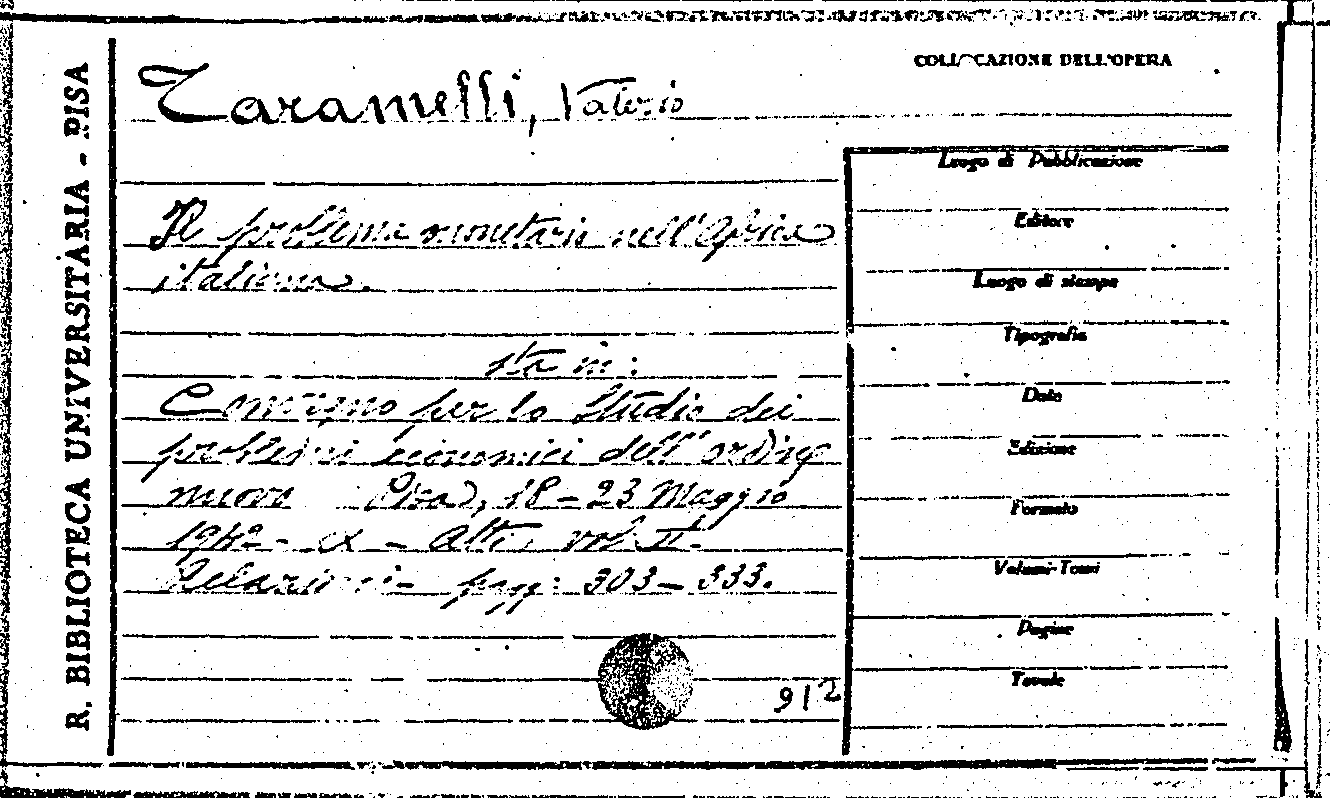 R. BIBLIOTECA UNIVERSITARIA - PISA
COLLOCAZIONE DELL'OPERA
Taramelli, Valerio
Il problema monetario nell'Africa
italiana.
sta in:
Convegno per lo Studio dei
problemi economici dell'ordine
nuovo Pisa, 18-23 Maggio
1942 - XX - Atti, vol. II.
Relazioni - pagg: 303-333.
912
Luogo di Pubblicazione
Editore
Luogo di stampa
Tipografia
Data
Edizione
Formato
Volumi-Tomi
Pagine
Tavole